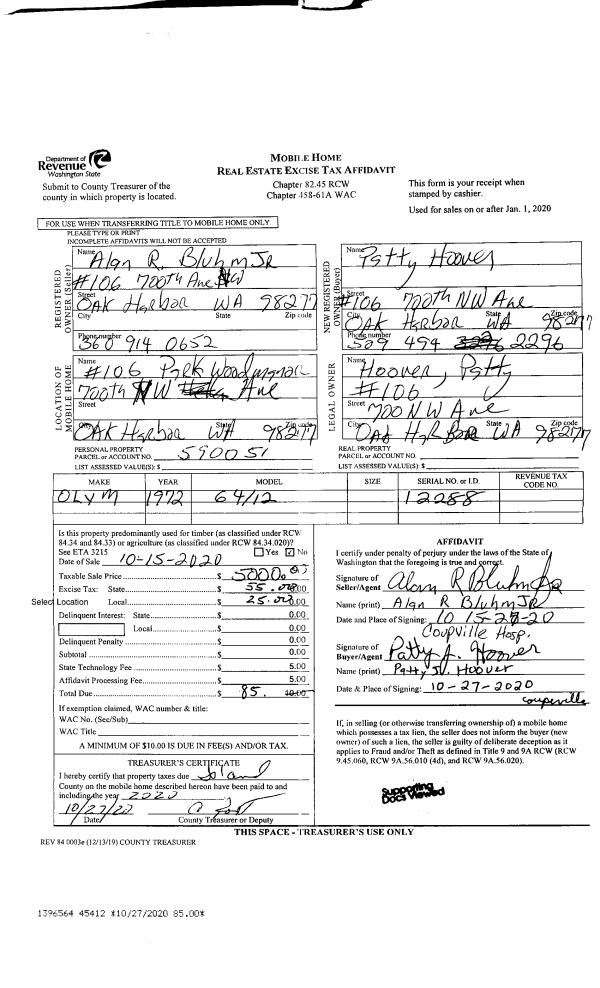 Department of
Revenue
Washington State
Submit to County Treasurer of the
county in which property is located.
MOBILE HOME
REAL ESTATE EXCISE TAX AFFIDAVIT
Chapter 82.45 RCW
Chapter 458-61A WAC
This form is your receipt when
stamped by cashier.
Used for sales on or after Jan. 1, 2020
FOR USE WHEN TRANSFERRING TITLE TO MOBILE HOME ONLY
PLEASE TYPE OR PRINT
INCOMPLETE AFFIDAVITS WILL NOT BE ACCEPTED
REGISTERED
OWNER (Seller)
Name Alan R. Bluhm JR
#106 700th Ave NW
Street
OAK HArbor WA 98277
City State Zip code
Phone number
360 914 0652
NEW REGISTERED
OWNER (Buyer)
Name Patty Hoover
Street #106 700th NW Ave
OAK HArbor WA 98277
City State Zip code
Phone number
509 494 2296
LOCATION OF
MOBILE HOME
Name #106 Park Wood manor
700th NW Ave
Street
OAK HArbor WA 98277
City State Zip code
PERSONAL PROPERTY
PARCEL or ACCOUNT NO. 590051
LIST ASSESSED VALUE(S): $
LEGAL OWNER
Name Hoover, Patty
#106
Street 700 NW Ave
OAK HArbor WA 98277
City State Zip code
REAL PROPERTY
PARCEL or ACCOUNT NO.
LIST ASSESSED VALUE(S): $
MAKE YEAR MODEL SIZE SERIAL NO. or I.D. REVENUE TAX CODE NO.
OLYM 1972 64/12 12288
Is this property predominantly used for timber (as classified under RCW
84.34 and 84.33) or agriculture (as classified under RCW 84.34.020)?
See ETA 3215 Yes No
Date of Sale 10-15-2020
Taxable Sale Price $ 5000.00
Excise Tax: State $ 55.00 0.00
Select Location Local $ 25.00 0.00
Delinquent Interest: State $ 0.00
Local $ 0.00
Delinquent Penalty $ 0.00
Subtotal $ 0.00
State Technology Fee $ 5.00
Affidavit Processing Fee $ 5.00
Total Due $ 85. 10.00
If exemption claimed, WAC number & title:
WAC No. (Sec/Sub)
WAC Title
A MINIMUM OF $10.00 IS DUE IN FEE(S) AND/OR TAX.
TREASURER'S CERTIFICATE
I hereby certify that property taxes due Island
County on the mobile home described hereon have been paid to and
including the year 2020
10/27/20
Date County Treasurer or Deputy
AFFIDAVIT
I certify under penalty of perjury under the laws of the State of
Washington that the foregoing is true and correct.
Signature of
Seller/Agent Alan R Bluhm Jr
Name (print) Alan R Bluhm JR
Date and Place of Signing: 10 15-27-20
Coupville Hosp.
Signature of
Buyer/Agent Patty J. Hoover
Name (print) Patty J. Hoover
Date & Place of Signing: 10-27-2020
coupeville
If, in selling (or otherwise transferring ownership of) a mobile home
which possesses a tax lien, the seller does not inform the buyer (new
owner) of such a lien, the seller is guilty of deliberate deception as it
applies to Fraud and/or Theft as defined in Title 9 and 9A RCW (RCW
9.45.060, RCW 9A.56.010 (4d), and RCW 9A.56.020).
Supporting
Docs Viewed
THIS SPACE - TREASURER'S USE ONLY
REV 84 0003e (12/13/19) COUNTY TREASURER
1396564 45412 *10/27/2020 85.00*